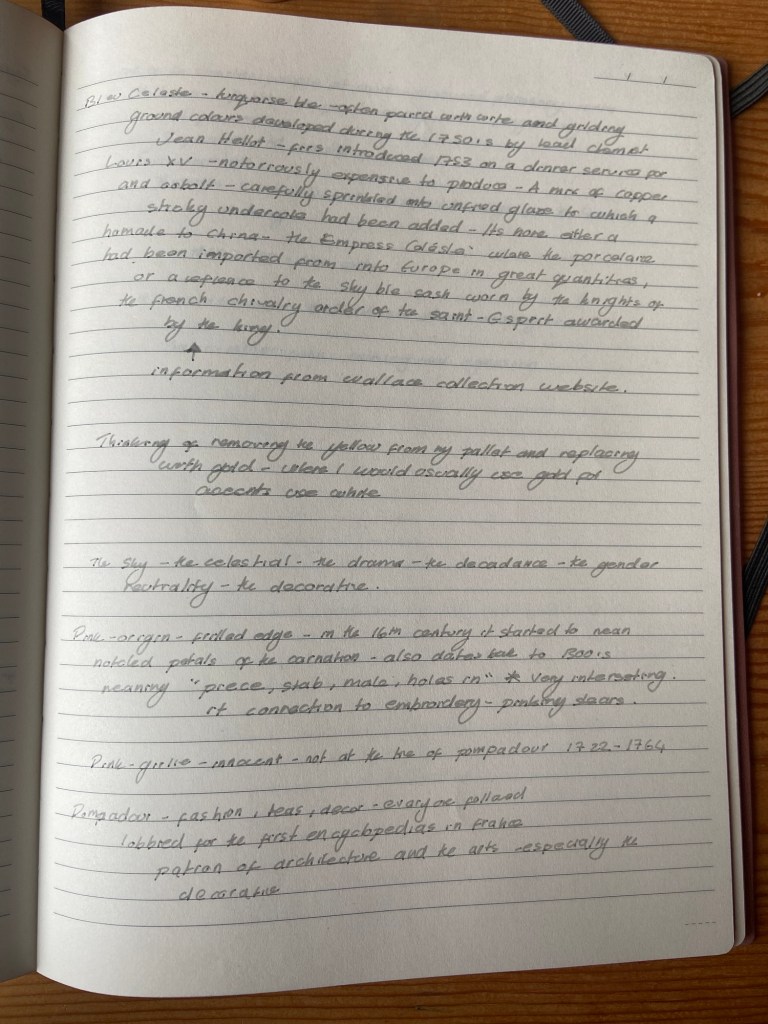 Bleu Celeste - turquoise blue - often paired with white and gilding
ground colours developed during the 1750's by lead chemist
Jean Hellot - first introduced 1753 on a dinner service for
Louis XV - notoriously expensive to produce - A mix of copper
and cobalt - carefully sprinkled onto unfired glaze to which a
sticky undercoat had been added - Its name either a
homade to China - the Empress Céleste' where the porcelain
had been imported from into Europe in great quantities,
or a refrence to the sky ble sash worn by the knights of
the french chivalry order of the saint - Esprit awarded
by the king.
information from wallace collection website.
Thinking of removing the yellow from my pallet and replacing
with gold - where I would usually use gold for
accents use white
The sky - the celestial - the drama - the decadance - the gender
neutrality - the decorative.
Pink - origin - frilled edge - in the 16th century it started to mean
notched petals of the carnation - also dates back to 1300's
meaning "pierce, stab, make, holes in" * Very interseting.
it connection to embroidery - pinking shears.
Pink - girlie - innocent - not at the time of pompadour 1722 - 1764
Pompadour - fashion, teas, decor - everyone followed
lobbied for the first encyclopedias in france
patron of architecture and the arts - especially the
decorative